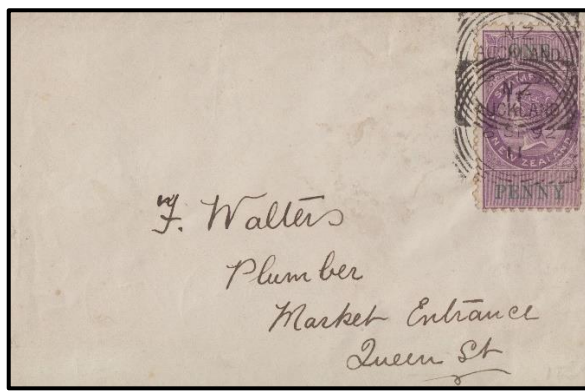 N.Z
AUCKLAND
ONE
N.Z
AUCKLAND
NEW ZEALAND
PENNY
F. Walters
Plumber
Market Entrance
Queen St